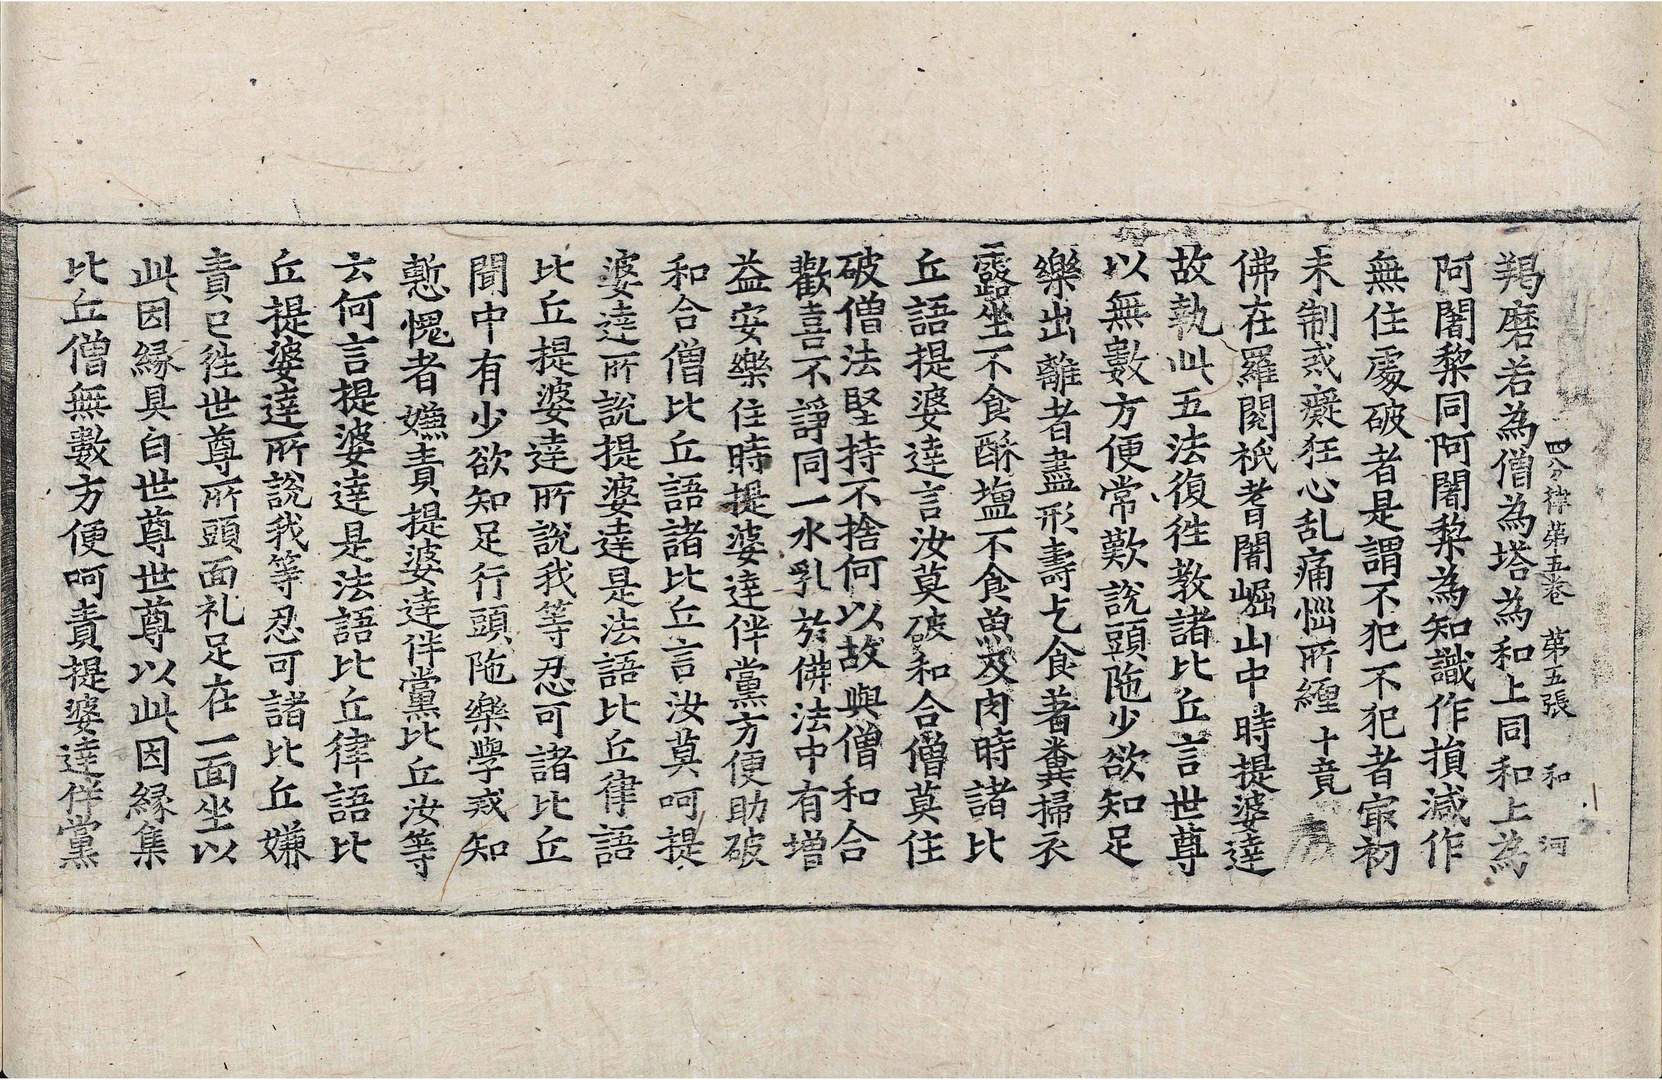 四分律第五卷 第五張 和 河
羯磨若為僧為塔為和上同和上為
阿闍黎同阿闍棃為知識作損減作
無住處破者是謂不犯不犯者㝡初
未制戒癡狂心乱痛惱所纏十竟
佛在羅閱祇耆闍崛山中時提婆達
故執此五法復往教諸比丘言世尊
以無數方便常歎說頭陁少欲知足
樂出離者盡形壽乞食著糞掃衣
露坐不食酥塩不食魚及肉時諸比
丘語提婆達言汝莫破和合僧莫住
破僧法堅持不捨何以故與僧和合
歡喜不諍同一水乳於佛法中有增
益安樂住時提婆達伴黨方便助破
和合僧比丘語諸比丘言汝莫呵提
婆達所說提婆達是法語比丘律語
比丘提婆達所說我等忍可諸比丘
聞中有少欲知足行頭陁樂學戒知
慙愧者嫌責提婆達伴黨比丘汝等
云何言提婆達是法語比丘律語比
丘提婆達所說我等忍可諸比丘嫌
責已往世尊所頭面礼足在一面坐以
此因緣具白世尊世尊以此因緣集
比丘僧無數方便呵責提婆達伴黨